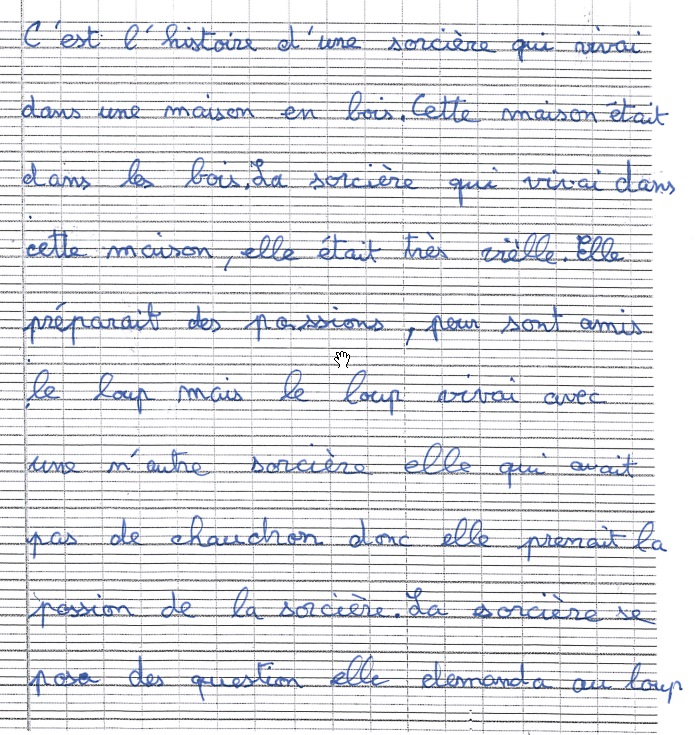 C'est l'histoire d'une sorcière qui vivai
dans une maison en bois. Cette maison était
dans les bois. La sorcière qui vivai dans
cette maison, elle était très vièlle. Elle
préparait des possions, pour sont amis
le loup mais le loup vivai avec
une n'autre sorcière elle qui avait
pas de chauchron donc elle prenait la
possion de la sorcière. La sorcière se
posa des question elle demanda au loup